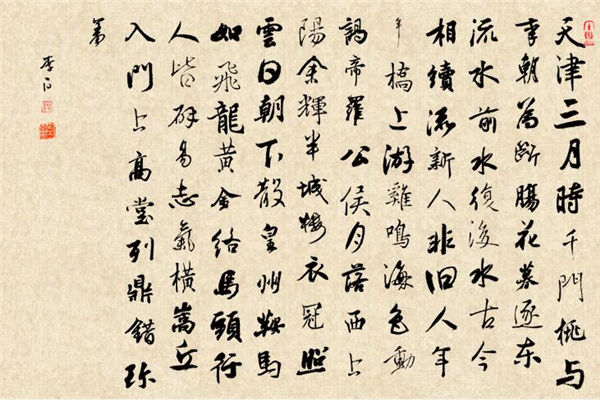 天津三月時千門桃与
李朝為斷腸花暮逐东
流水前水復後水古今
相續流新人非旧人年
年橋上游雞鳴海色動
謁帝羅公侯月落西上
陽余輝半城楼衣冠照
雲日朝下散皇州鞍馬
如飛龍黄金络馬頭行
人皆辟易志氣橫嵩丘
入門上高堂列鼎錯珍
羞
李白